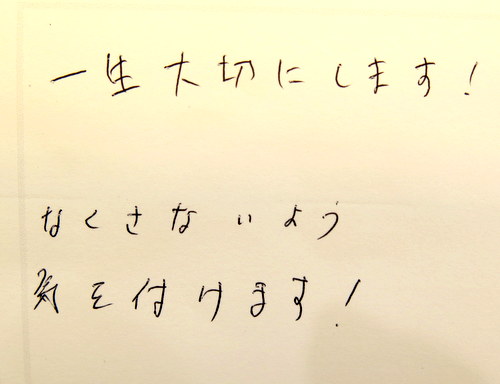 一生大切にします!
なくさないよう
気を付けます!